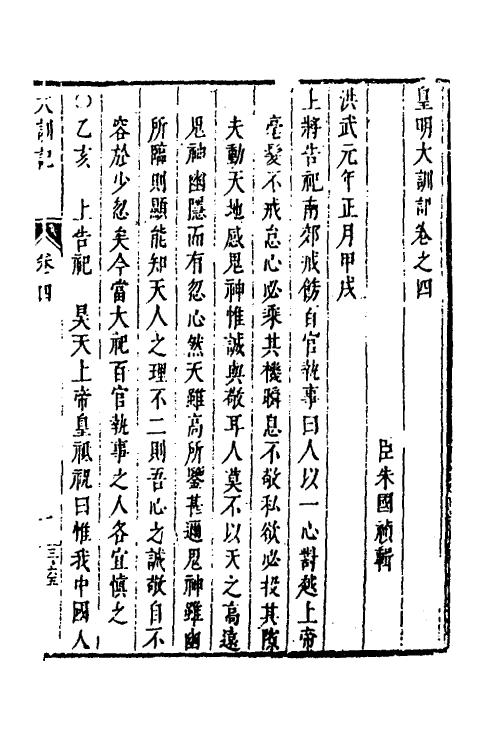 皇明大訓記卷之四
臣朱國禎輯
洪武元年正月甲戌
上將告祀南郊戒飭百官執事曰人以一心對越上帝
毫髮不戒怠心必乘其機瞬息不敬私欲必投其隙
夫動天地感鬼神惟誠與敬耳人莫不以天之高遠
鬼神幽隱而有忽心然天雖高所鑒甚邇鬼神雖幽
所臨則顯能知天人之理不二則吾心之誠敬自不
容於少忽矣今當大祀百官執事之人各宜慎之
〇乙亥 上告祀 昊天上帝皇祇祝曰惟我中國人
大訓記 卷四 一